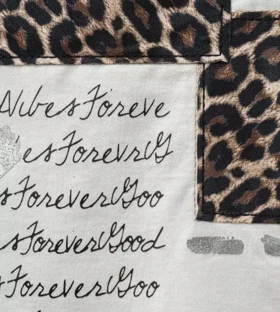 VibesForeve
esForevrG
sForeverGoo
sForeverGood
sForeverGoo